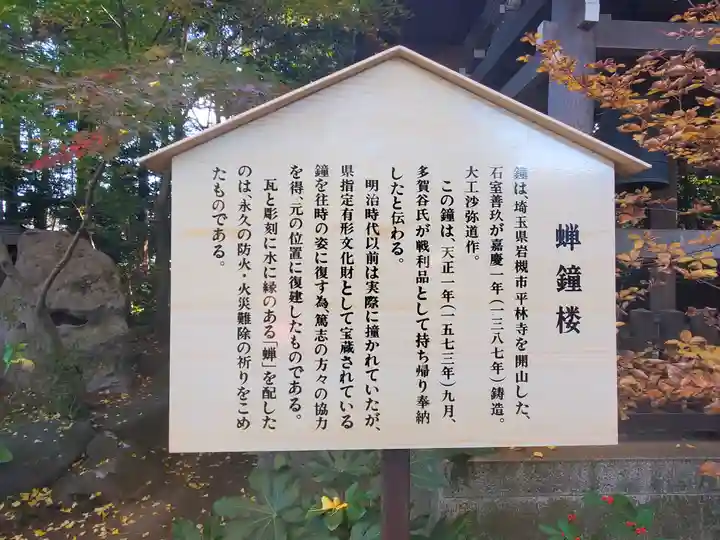 蝉鐘楼
鐘は、埼玉県岩槻市平林寺を開山した、
石室善玖が嘉慶一年(一三八七年)鋳造。
大工沙弥道作。
この鐘は、天正一年(一五七三年)九月、
多賀谷氏が戦利品として持ち帰り奉納
したと伝わる。
明治時代以前は実際に撞かれていたが、
県指定有形文化財として宝蔵されている
鐘を往時の姿に復す為、篤志の方々の協力
を得、元の位置に復建したものである。
瓦と彫刻に水に縁のある「蝉」を配した
のは、永久の防火・火災難除の祈りをこめ
たものである。